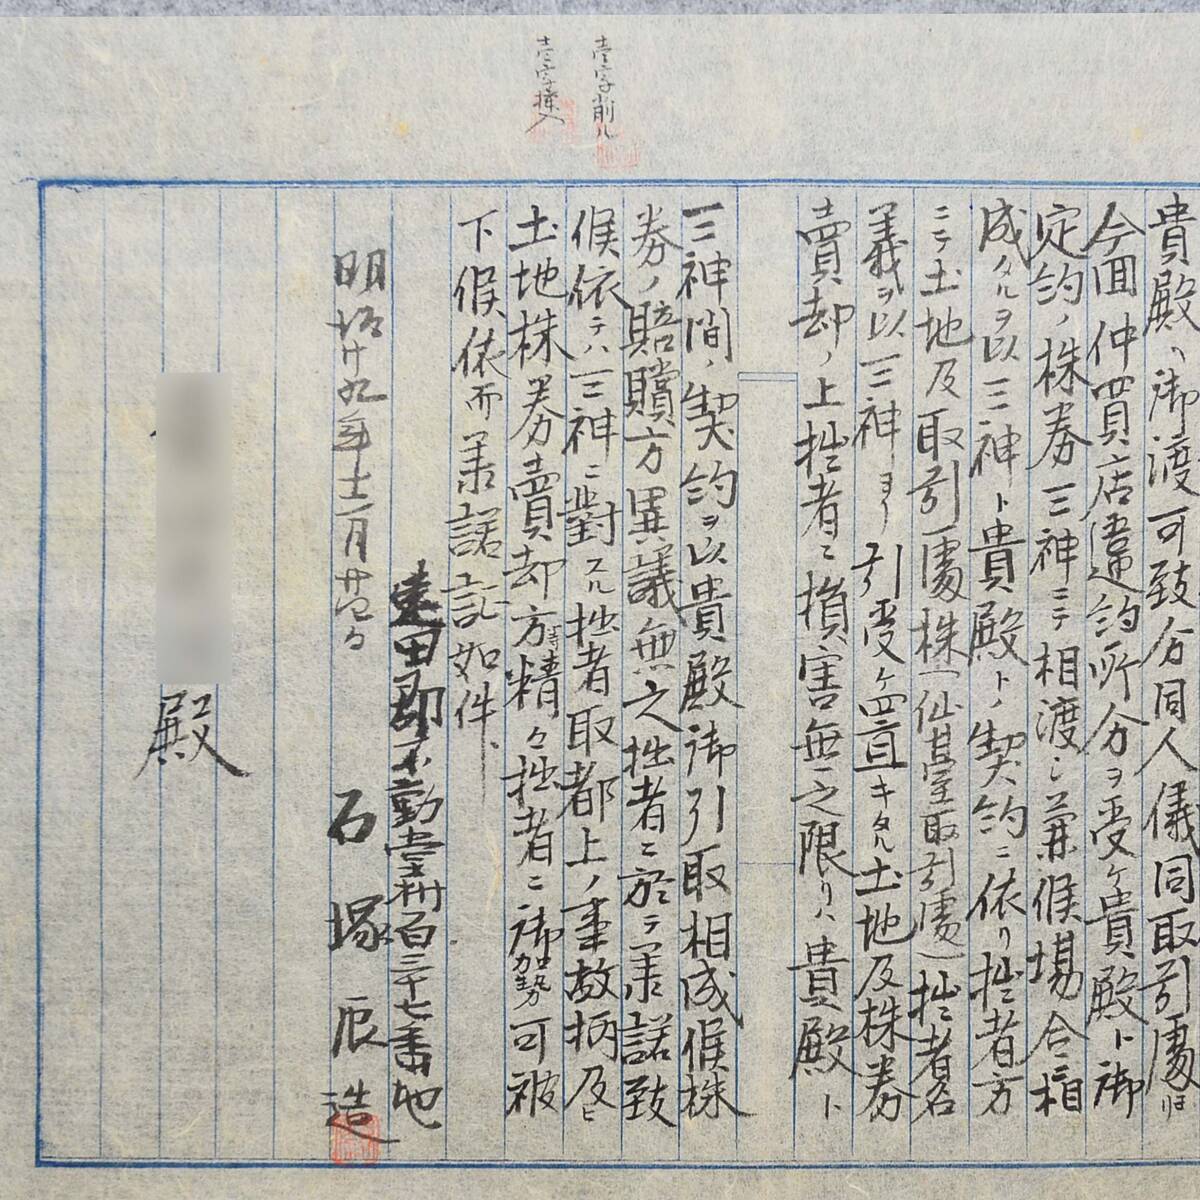 壱字削ル
壱字挿入
貴殿ヘ御渡可致分同人儀同取引處ヨリ
今回仲買店違約所分ヲ受ケ貴殿ト御
定約ノ株券三神ニテ相渡シ兼候場合ニ相
成タルヲ以三神ト貴殿トノ契約ニ依リ拙者方
ニテ土地及取引處株(仙䑓取引處)拙者名
義ヲ以三神ヨリ引受ケ置キタル土地及株券
賣却ノ上拙者ニ損害無之限リハ貴殿ト
三神間ノ契約ヲ以貴殿御引取相成候株
券ノ賠贖方異議無之拙者ニ於テ承諾致
候依テハ三神ニ對スル拙者取都上ノ事故柄及ヒ
土地株券賣却方等精々拙者ニ御助勢可被
下候依而承諾証如件、
明治廿九年十二月廿四日
遠田郡不動堂村百三十七番地
石塚辰造
殿